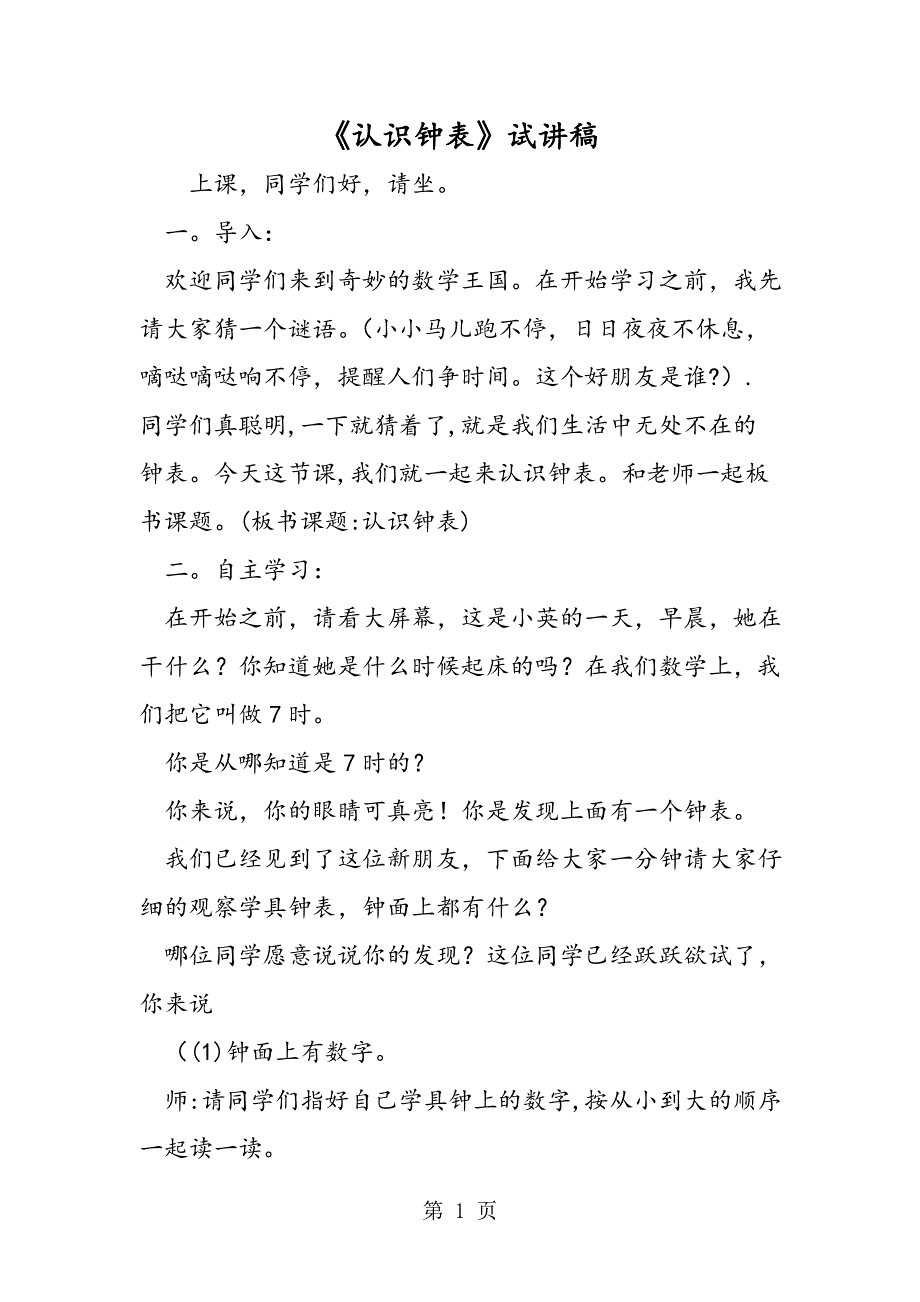 《认识钟表》试讲稿
上课，同学们好，请坐。
一。导入：
欢迎同学们来到奇妙的数学王国。在开始学习之前，我先
请大家猜一个谜语。（小小马儿跑不停，日日夜夜不休息，
嘀哒嘀哒响不停，提醒人们争时间。这个好朋友是谁?）.
同学们真聪明,一下就猜着了,就是我们生活中无处不在的
钟表。今天这节课,我们就一起来认识钟表。和老师一起板
书课题。(板书课题:认识钟表)
二。自主学习：
在开始之前，请看大屏幕，这是小英的一天，早晨，她在
干什么？你知道她是什么时候起床的吗？在我们数学上，我
们把它叫做７时。
你是从哪知道是７时的？
你来说，你的眼睛可真亮！你是发现上面有一个钟表。
我们已经见到了这位新朋友，下面给大家一分钟请大家仔
细的观察学具钟表，钟面上都有什么？
哪位同学愿意说说你的发现？这位同学已经跃跃欲试了，
你来说
（(1)钟面上有数字。
师:请同学们指好自己学具钟上的数字,按从小到大的顺序
一起读一读。
第 1 页